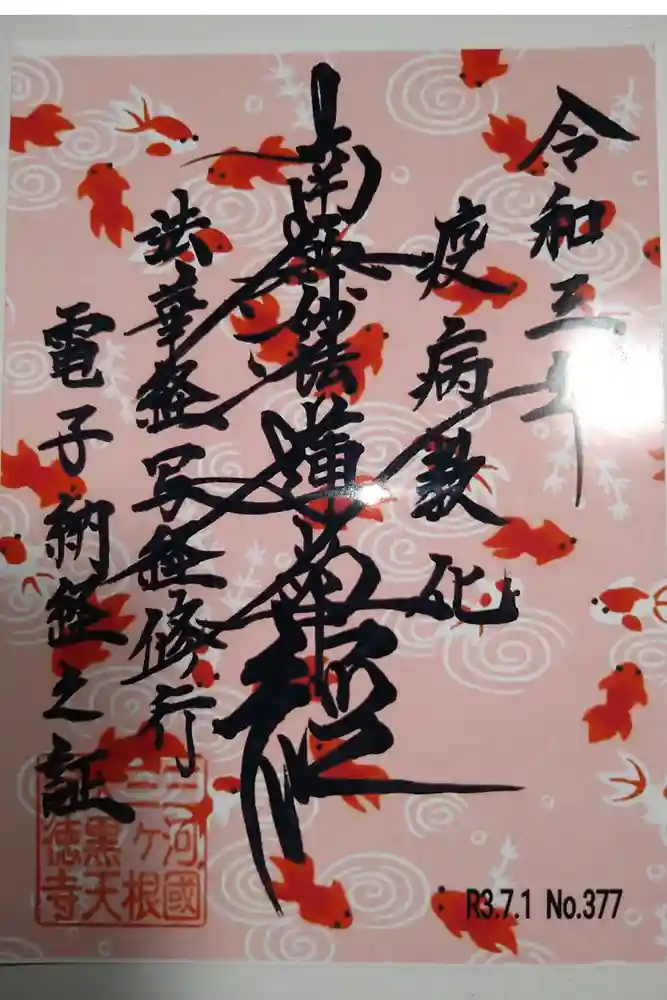 令和三年
疫病教化
南無妙法蓮華経
法華経写経修行
電子納経之証
三河國
三ヶ根
黒天
徳寺
R3.7.1 No.377